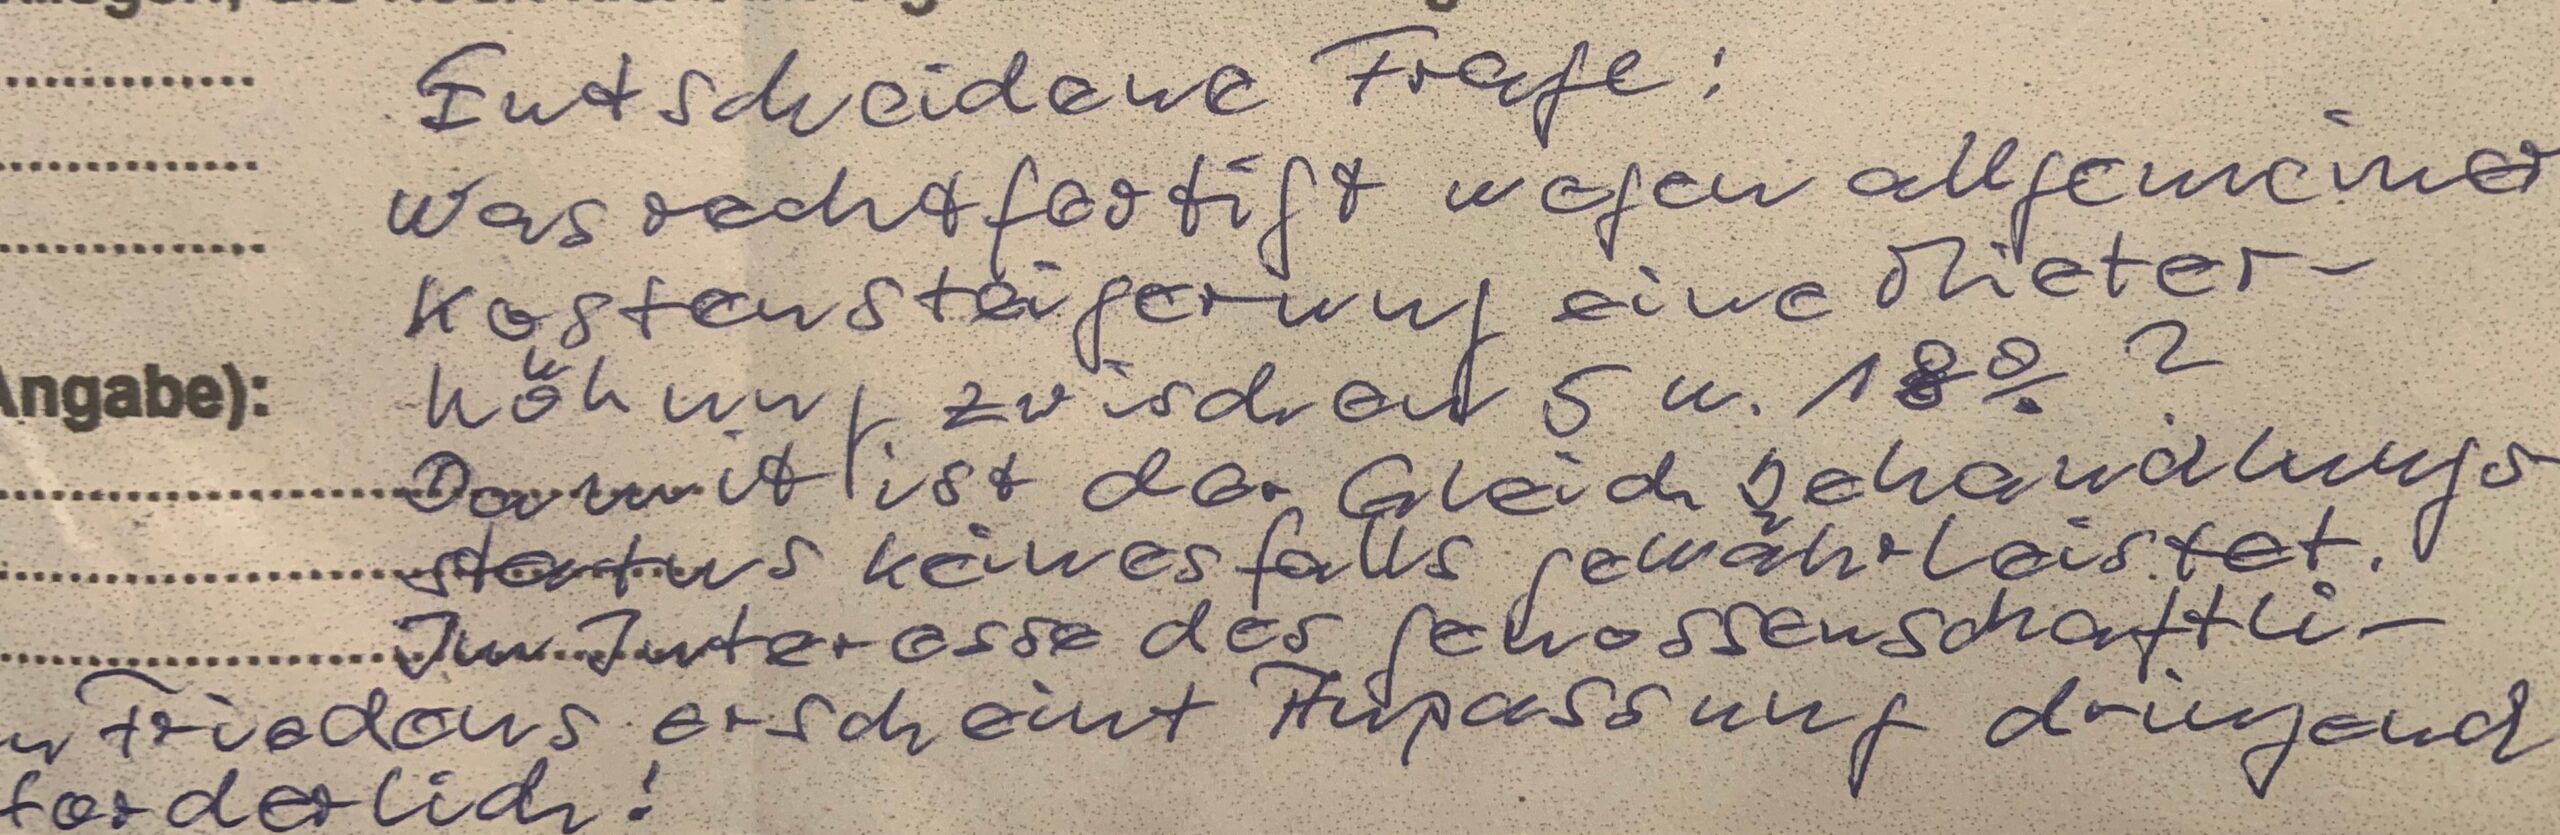 Entscheidene Frage:
Was rechtfertigt wegen allgemeiner
Kostensteigerung eine Mieter-
Angabe):
höhung zwischen 5 u. 18% ?
Damit ist der Gleichbehandlungs
status keinesfalls gewährleistet.
Im Interesse des genossenschaftli-
n Friedens erscheint Anpassung dringend
forderlich!